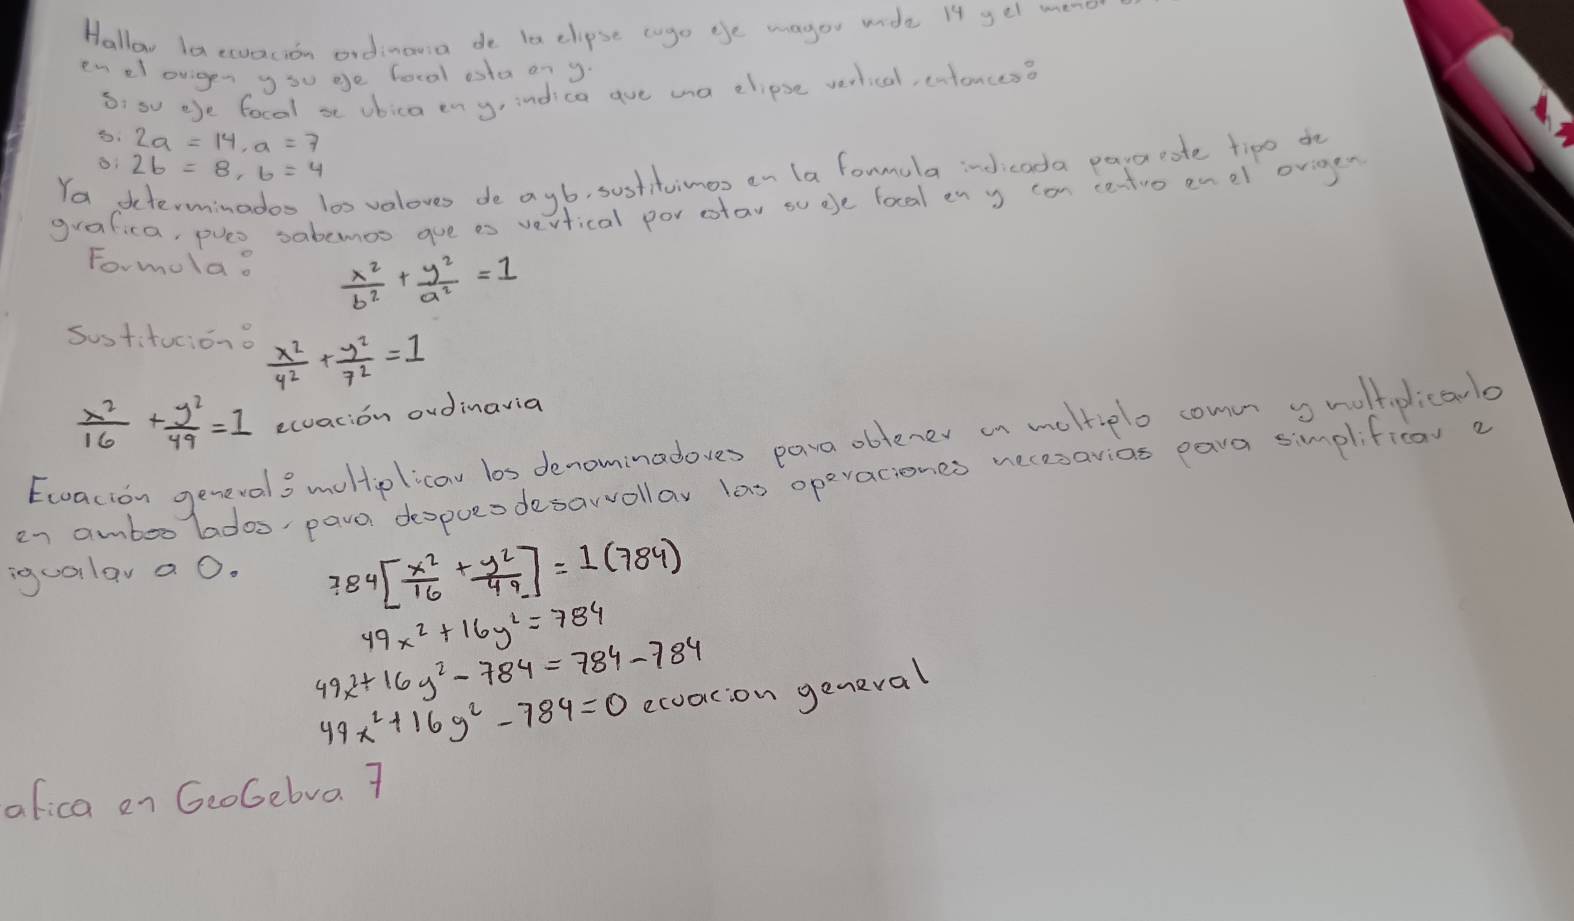 Hallar la ecuación ordinaria de la elipse cuyo eje mayor mide 14 y el menor
en el origen y su eje focal esta en y.
Si su eje focal se ubica en y, indica que una elipse vertical, entonces:
si 2a = 14, a = 7
si 2b = 8, b = 4
Ya determinados los valores de a y b, sustituimos en la formula indicada para este tipo de
grafica, pues sabemos que es vertical por estar su eje focal en y con centro en el origen
Formula: x²/b² + y²/a² = 1
Sustitución: x²/4² + y²/7² = 1
x²/16 + y²/49 = 1 ecuación ordinaria
Ecuación general: multiplicar los denominadores para obtener un multiplo comun y multiplicarlo
en ambos lados, para despues desarrollar las operaciones necesarias para simplificar e
igualar a 0.
784[x²/16 + y²/49] = 1(784)
49x² + 16y² = 784
49x² + 16y² - 784 = 784 - 784
49x² + 16y² - 784 = 0 ecuacion general
afica en GeoGebra 7